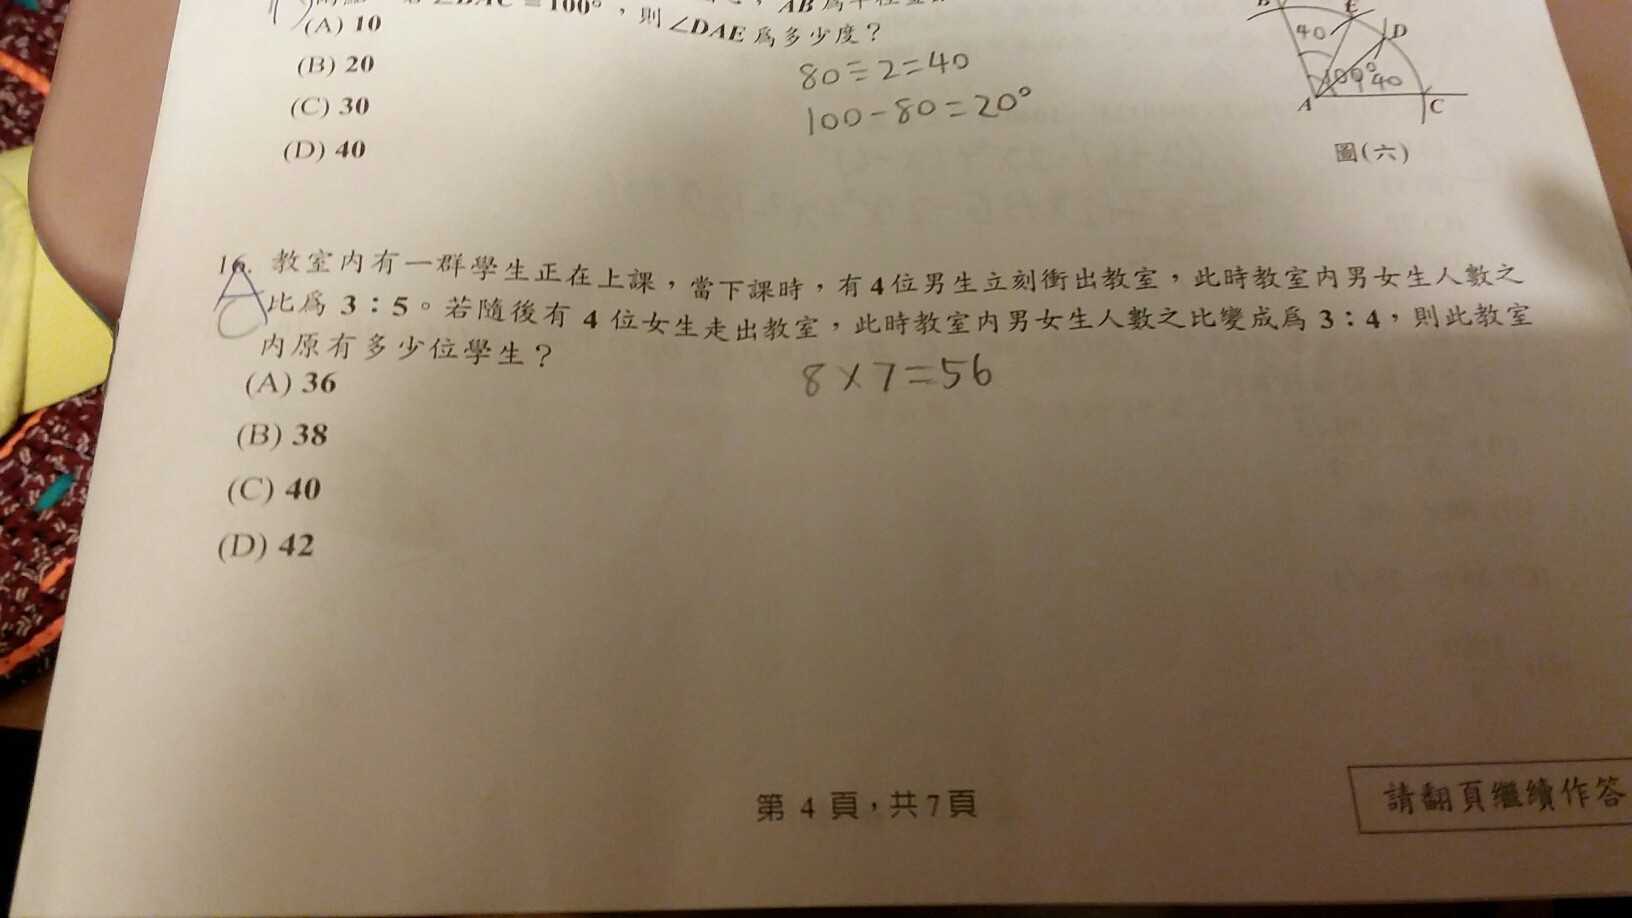 ∠BAC = 100°，則∠DAE 為多少度？
(A) 10
(B) 20
(C) 30
(D) 40
80÷2=40
100-80=20°
B
E
40
D
100°
40
A
C
圖(六)
16. 教室內有一群學生正在上課，當下課時，有 4 位男生立刻衝出教室，此時教室內男女生人數之
A
比為 3：5。若隨後有 4 位女生走出教室，此時教室內男女生人數之比變成為 3：4，則此教室
C
內原有多少位學生？
8×7=56
(A) 36
(B) 38
(C) 40
(D) 42
第 4 頁，共 7 頁
請翻頁繼續作答